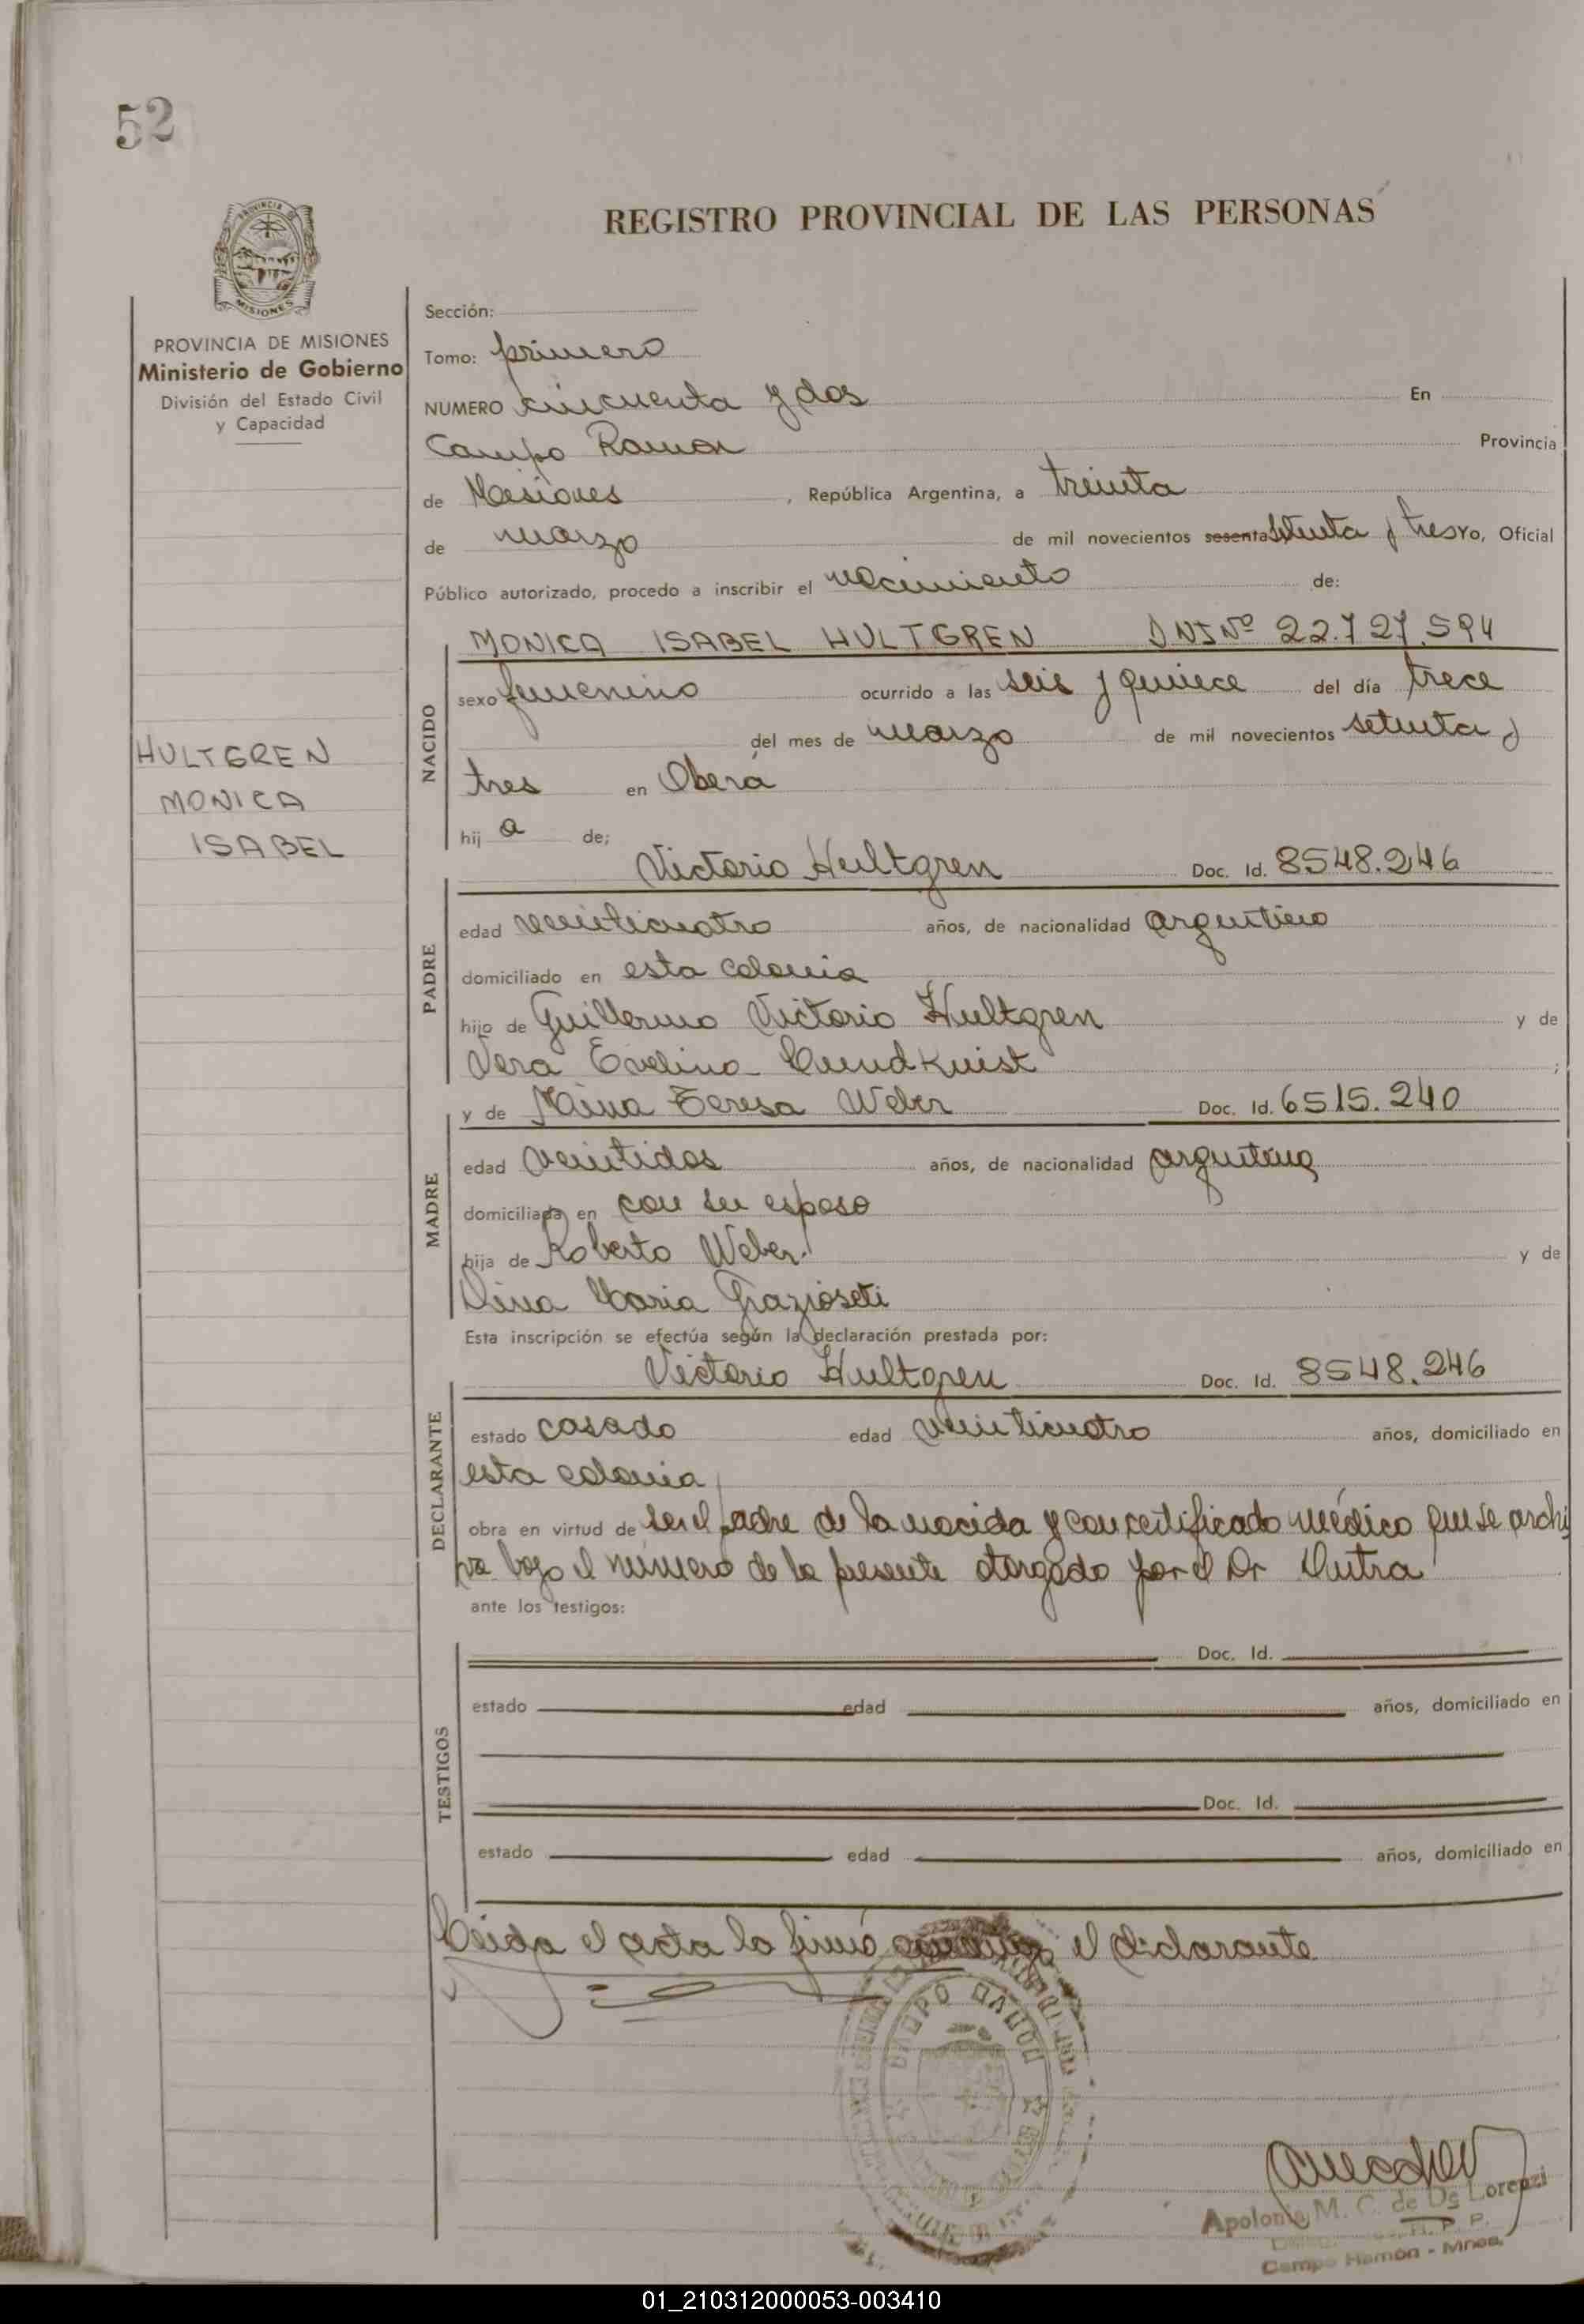 52
PROVINCIA DE
MISIONES
REGISTRO PROVINCIAL DE LAS PERSONAS
PROVINCIA DE MISIONES
Ministerio de Gobierno
División del Estado Civil
y Capacidad
HULTGREN
MONICA
ISABEL
Sección:
Tomo: primero
NUMERO cincuenta y dos En
Campo Ramon Provincia
de Misiones, República Argentina, a treinta
de marzo de mil novecientos sesenta setenta y tres Yo, Oficial
Público autorizado, procedo a inscribir el nacimiento de:
MONICA ISABEL HULTGREN DNI Nº 22.727.594
NACIDO
sexo femenino ocurrido a las seis y quince del día trece
del mes de marzo de mil novecientos setenta y
tres en Oberá
hij a de;
Victorio Hultgren Doc. Id. 8548.246
PADRE
edad veinticuatro años, de nacionalidad argentino
domiciliado en esta colonia
hijo de Guillermo Victorio Hultgren y de
Vera Evelina Lundkuist ;
y de Mina Teresa Weber Doc. Id. 6515.240
MADRE
edad veintidos años, de nacionalidad argentina
domiciliada en con su esposo
hija de Roberto Weber y de
Dina Maria Grazioseti
Esta inscripción se efectúa según la declaración prestada por:
Victorio Hultgren Doc. Id. 8548.246
DECLARANTE
estado casado edad veinticuatro años, domiciliado en
esta colonia
obra en virtud de ser el padre de la nacida y con certificado médico que se archi
va bajo el número de la presente otorgado por el Dr Dutra
ante los testigos:
TESTIGOS
Doc. Id.
estado edad años, domiciliado en
Doc. Id.
estado edad años, domiciliado en
Leida el acta la firmó el declarante
CAMPO RAMON
Apolonia M. C. de De Lorenzi
R. P. P.
Campo Ramón - Mnes.
01_210312000053-003410